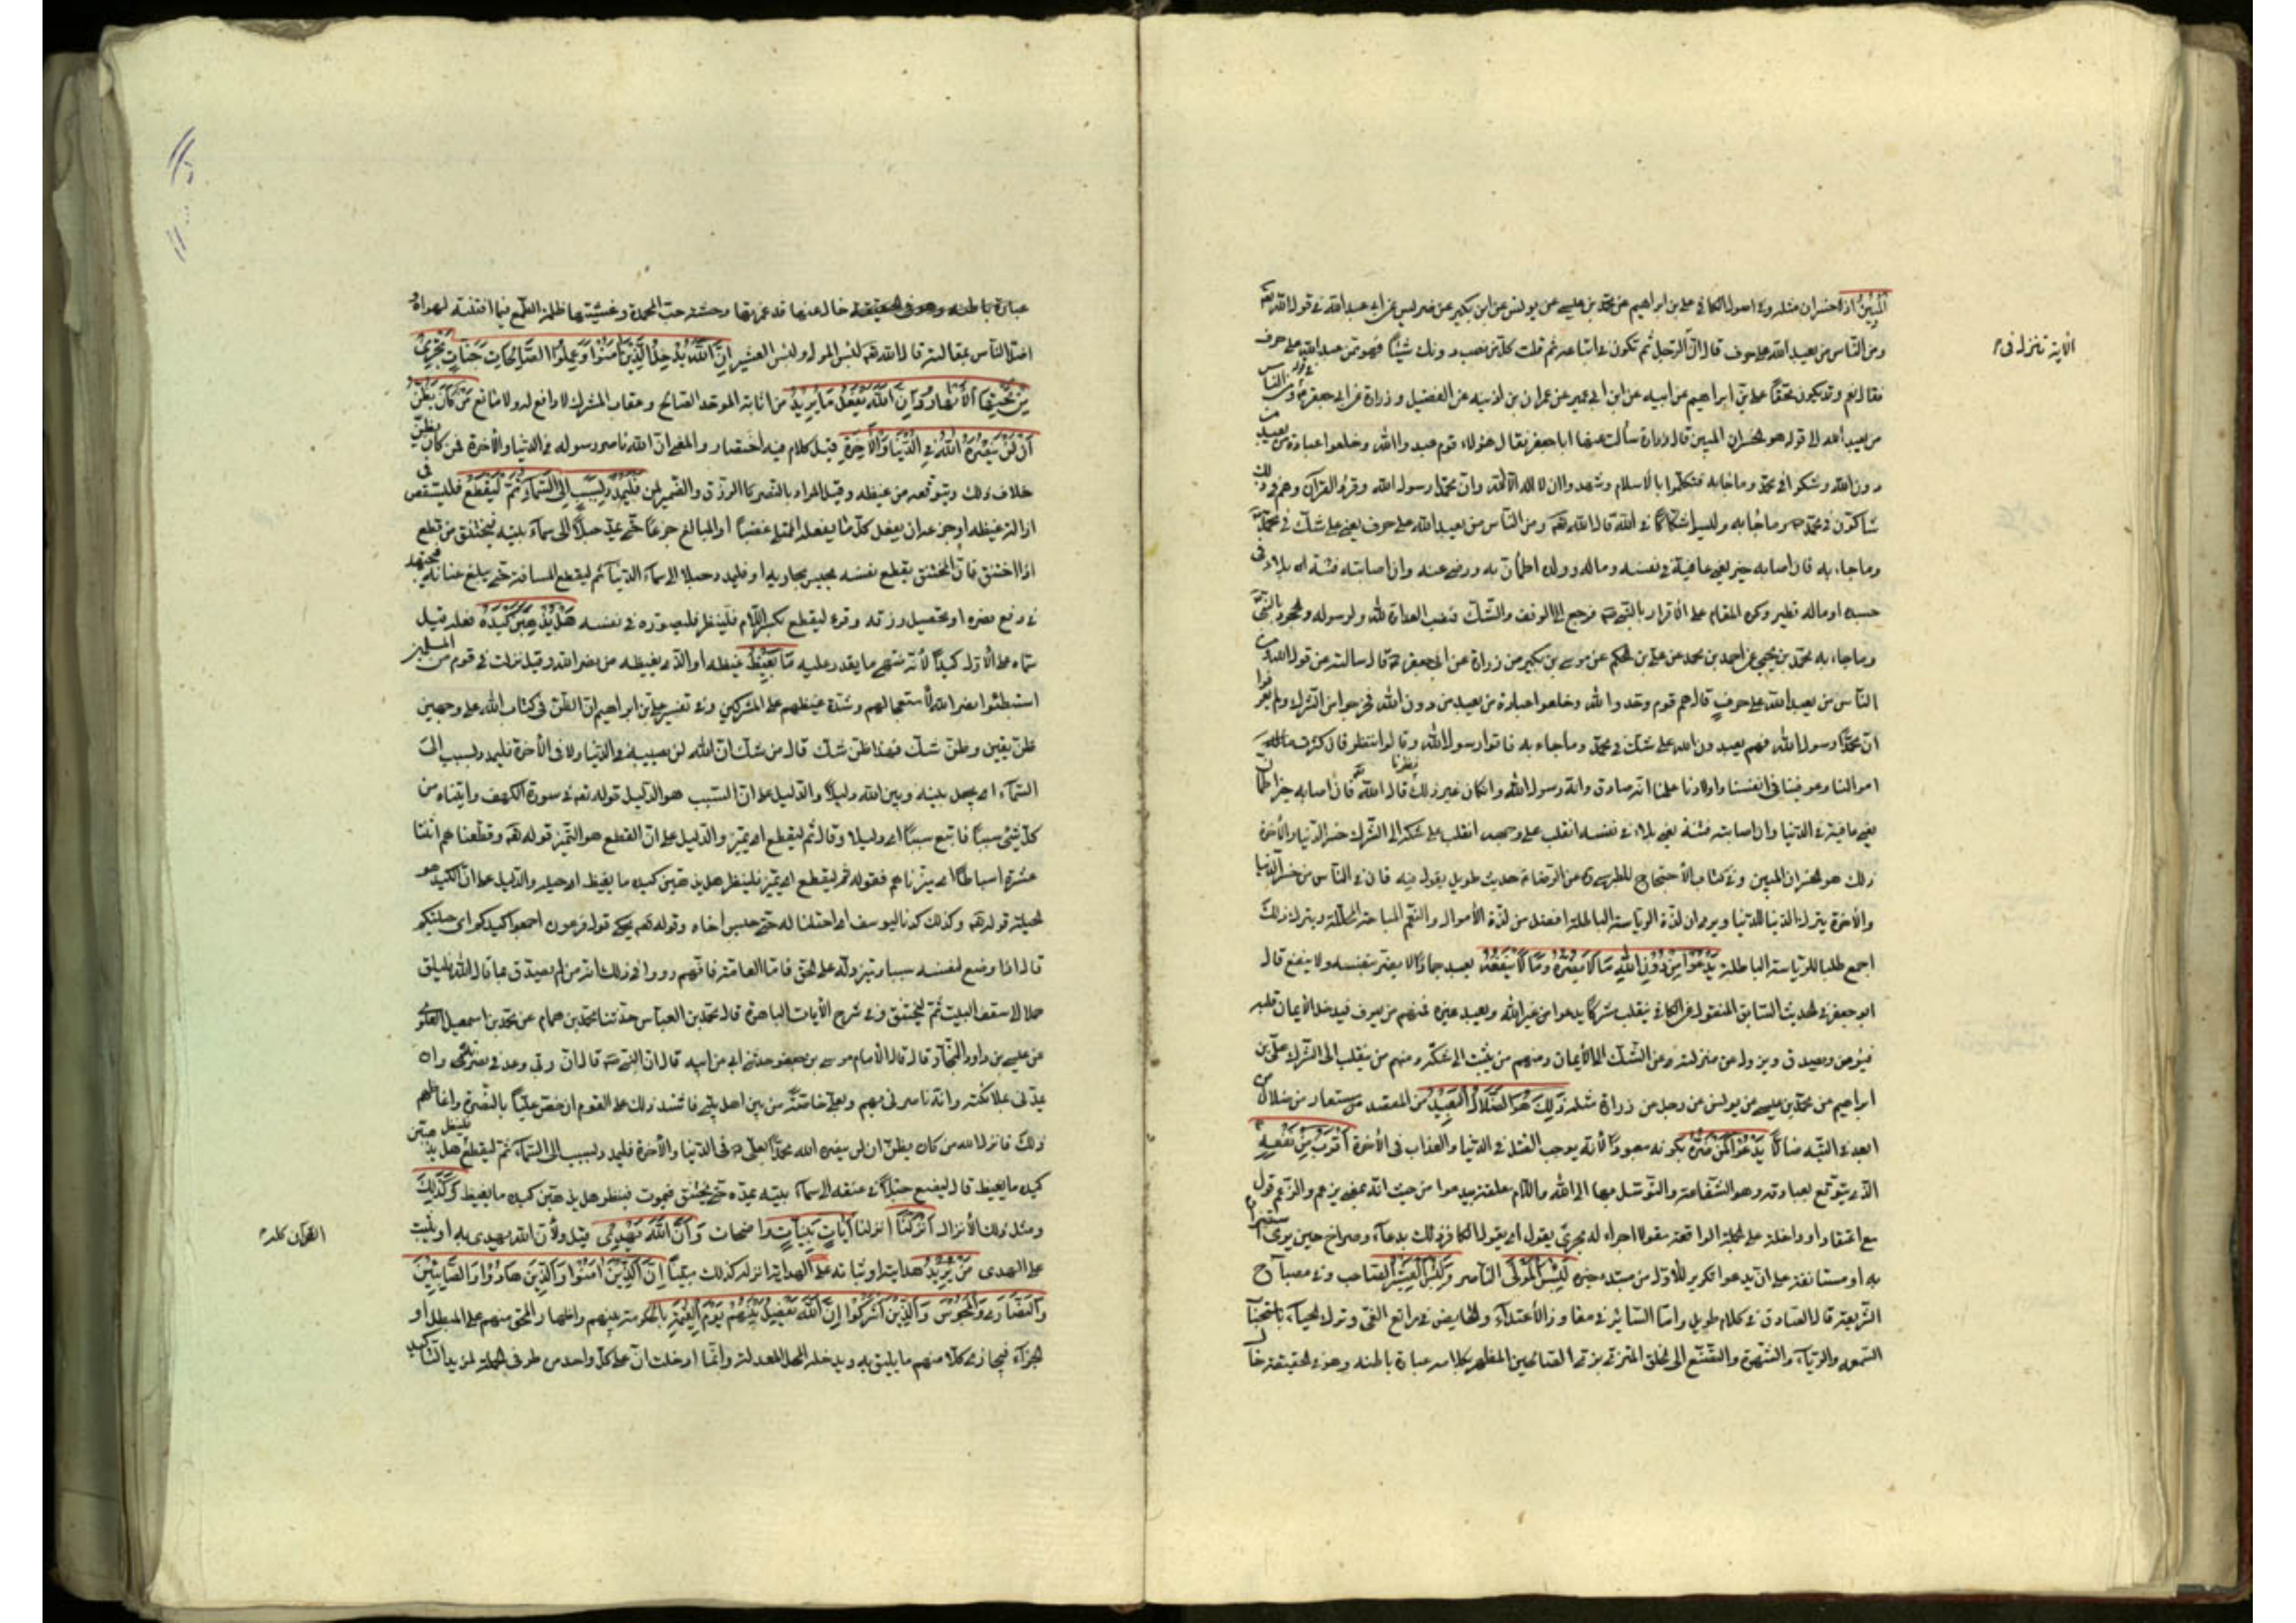 المبين اذ لا خسران مثله وفي اصول الكافي علي بن ابراهيم عن محمد بن عيسى عن يونس عن ابن بكير عن ضريس عن ابي عبد الله في قول الله تعه
ومن الناس من يعبد الله على حرف قال ان الآية تنزل في الرجل ثم تكون في اتباعه ثم قلت كل من نصب دونك شيئا فهو ممن يعبد الله على حرف
فقال نعم وقد يكون محضا علي بن ابراهيم عن ابيه عن ابن ابي عمير عن عمر بن اذينه عن الفضيل وزرارة عن ابي جعفر في قوله ومن الناس
من يعبد الله الى قوله هو الخسران المبين قال زرارة سألت عنها ابا جعفر فقال هؤلاء قوم عبدوا الله وخلعوا عبادة من يعبد من
دون الله وشكوا في محمد وما جاء به فتكلموا بالاسلام وشهدوا ان لا اله الا الله وان محمدا رسول الله واقروا بالقرآن وهم في ذلك
شاكون في محمد وما جاء به وليسوا شكاكا في الله قال الله تعه ومن الناس من يعبد الله على حرف يعني على شك في محمد
وما جاء به فان اصابه خير يعني عافية في نفسه وماله وولده اطمأن به ورضي عنه وان اصابته فتنة اي بلاء في
جسده او ماله تطير وكره المقام على الاقرار بالنبي فرجع الى الوقف والشك فنصب العداوة لله ولرسوله والجحود بالنبي
وما جاء به محمد بن يحيى عن احمد بن محمد عن علي بن الحكم عن موسى بن بكير عن زرارة عن ابي جعفر قال سالته عن قول الله ومن
الناس من يعبد الله على حرف قال هم قوم وحدوا الله وخلعوا عبادة من يعبد من دون الله فخرجوا من الشرك ولم يعرفوا
ان محمدا رسول الله فهم يعبدون الله على شك في محمد وما جاء به فاتوا رسول الله وقالوا ننظر فان كثرت
اموالنا وعوفينا في انفسنا واولادنا علمنا انه صادق وانه رسول الله وان كان غير ذلك نظرنا قال الله تعه فان اصابه خير اطمأن
يعني عافية في الدنيا وان اصابته فتنة يعني بلاء في نفسه انقلب على وجهه انقلب على شكه الى الشرك خسر الدنيا والآخرة
ذلك هو الخسران المبين وفي كتاب الاحتجاج للطبرسي عن الرضا حديث طويل يقول فيه فان في الناس من خسر الدنيا
والآخرة يترك الدنيا للدنيا ويرى ان لذة الرياسة الباطلة افضل من لذة الأموال والنعم المباحة المحللة ويترك ذلك
اجمع طلبا للرياسة الباطلة يَدْعُوا مِنْ دُونِ اللهِ مَا لَا يَضُرُّهُ وَمَا لَا يَنْفَعُهُ يعبد جمادا لا يضر بنفسه ولا ينفع قال
ابو جعفر في الحديث السابق المنقول عن الكافي ينقلب مشركا يدعوا من غير الله ويعبد غيره فمنهم من يعرف فيدخل الأيمان قلبه
فيؤمن ويصدق ويزول عن منزلته عن الشك الى الأيمان ومنهم من يثبت الى شكه ومنهم من ينقلب الى الشرك علي بن
ابراهيم عن محمد بن عيسى عن يونس عن رجل عن زرارة مثله ذَلِكَ هُوَ الضَّلَالُ الْبَعِيدُ عن المقصد مستعار من ضلال من
ابعد في التيه ضالا يَدْعُوا لَمَنْ ضَرُّهُ بكونه معبودا لأنه يوجب القتل في الدنيا والعذاب في الآخرة أَقْرَبُ مِنْ نَفْعِهِ
الذي يتوقع بعبادته وهو الشفاعة والتوسل بها الى الله واللام معلقة ليدعوا من حيث انه بمعنى يزعم والزعم قول
مع اعتقاد او داخلة على الجملة الواقعة مقولا اجراء له مجرى يقول اي يقول الكافر ذلك بدعاء وصراخ حين يرى استضراره
به او مستانفة على ان يدعوا تكرير للأول من مبتدء خبره لَبِئْسَ الْمَوْلَى الناصر وَلَبِئْسَ الْعَشِيرُ الصاحب وفي مصباح
الشريعة قال الصادق في كلام طويل واما السائر في مفاوز الأعتداء والخايض في مراتع الغي وترك الحياء باستحباب
السمعة والرياء والشهرة والتصنع الى الخلق المتزيى بزي الصالحين المظهر بكلامه عبارة باطنه وهو في الحقيقة خال
الآية تنزل في
عبارة باطنه وهو في الحقيقة خال عنها قد غمرتها وحشة حب المحمدة وغشيتها ظلمة الطمع فما افتنه لهواه
اضل الناس بمقالته قال الله تعه لبئس المولى ولبئس العشير إِنَّ اللهَ يُدْخِلُ الَّذِينَ آمَنُوا وَعَمِلُوا الصَّالِحَاتِ جَنَّاتٍ تَجْرِي
مِنْ تَحْتِهَا الْأَنْهَارُ إِنَّ اللهَ يَفْعَلُ مَا يُرِيدُ من اثابة الموحد الصالح وعقاب المشرك لا دافع له ولا مانع مَنْ كَانَ يَظُنُّ
أَنْ لَنْ يَنْصُرَهُ اللهُ فِي الدُّنْيَا وَالْآخِرَةِ قيل كلام فيه اختصار والمعنى ان الله ناصر رسوله في الدنيا والآخرة فمن كان يظن
خلاف ذلك ويتوقعه من غيظه وقيل المراد بالنصر الرزق والضمير لمن فَلْيَمْدُدْ بِسَبَبٍ إِلَى السَّمَاءِ ثُمَّ لْيَقْطَعْ فليستقص في
ازالة غيظه او جزعه بان يفعل كل ما يفعله الممتلي غضبا او المبالغ جزعا حتى يمد حبلا الى سماء بيته فيختنق من قطع
اذا اختنق فان المختنق يقطع نفسه بحبس مجاريه او فليمدد حبلا الى سماء الدنيا ثم ليقطع المسافة حتى يبلغ عنانه فيجتهد
في دفع نصره او تحصيل رزقه وقرء ليقطع بكسر اللام فَلْيَنْظُرْ فليصوره في نفسه هَلْ يُذْهِبَنَّ كَيْدُهُ فعله قيل
سماه على الأول كيدا لأنه منتهى ما يقدر عليه مَا يَغِيظُ غيظه او الذي يغيظه من نصر الله وقيل نزلت في قوم من المسلمين
استبطئوا نصر الله لأستعجالهم وشدة غيظهم على المشركين وفي تفسير علي بن ابراهيم ان الظن في كتاب الله على وجهين
ظن يقين وظن شك فهذا ظن شك قال من شك ان الله لن يثيبه في الدنيا ولا في الآخرة فليمدد بسبب الى
السماء اي يجعل بينه وبين الله دليلا والدليل على ان السبب هو الدليل قوله تعه في سورة الكهف وآتيناه من
كل شيء سببا فاتبع سببا اي دليلا وقال ثم ليقطع اي يميز والدليل على ان القطع هو التميز قوله تعه وقطعناهم اثنتا
عشرة اسباطا اي ميزناهم فقوله ثم ليقطع اي يميز فلينظر هل يذهبن كيده ما يغيظ اي حيلته والدليل على ان الكيد هو
الحيلة قوله تعه وكذلك كدنا ليوسف اي احتلنا له حتى حبس اخاه وقوله تعه يحكي قول فرعون اجمعوا كيدكم اي حيلتكم
قال اذا وضع لنفسه سببا وتميز دله على الحق فاما العامة فانهم رووا في ذلك انه من لم يصدق بما قال الله فليلق
حبلا الى سقف البيت ثم ليختنق وفي شرح الآيات الباهرة قال محمد بن العباس حدثنا محمد بن همام عن محمد بن اسمعيل العلوي
عن عيسى بن داود النجار قال قال الأمام موسى بن جعفر حدثني ابي عن ابيه قال ان النبي قال ان ربي وعدني نصرته وان
يمدني بملائكته وانه ناصرني بهم وبعلي خاصة من بين اهل بيتي فاشتد ذلك على القوم ان خص عليا بالنصرة واغاظهم
ذلك فانزل الله من كان يظن ان لن ينصره الله محمدا بعلي في الدنيا والآخرة فليمدد بسبب الى السماء ثم ليقطع فلينظر هل يذهبن
كيده ما يغيظ قال ليضع حبلا في عنقه الى سماء بيته يمده حتى يختنق فيموت فينظر هل يذهبن كيده ما يغيظ وَكَذَلِكَ
ومثل ذلك الأنزال أَنْزَلْنَاهُ انزلنا القرآن كله آيَاتٍ بَيِّنَاتٍ واضحات وَأَنَّ اللهَ يَهْدِي قيل ولأن الله يهدي به او يثبت
على الهدى مَنْ يُرِيدُ هدايته او ثباته على الهداية انزله كذلك مبينا إِنَّ الَّذِينَ آمَنُوا وَالَّذِينَ هَادُوا وَالصَّابِئِينَ
وَالنَّصَارَى وَالْمَجُوسَ وَالَّذِينَ أَشْرَكُوا إِنَّ اللهَ يَفْصِلُ بَيْنَهُمْ يَوْمَ الْقِيَمَةِ بالحكومة بينهم واظهار المحق منهم على المبطل او
الجزاء فيجازي كلا منهم ما يليق به ويدخله المحل المعد له وانما ادخلت ان على كل واحد من طرفي الجملة لمزيد التاكيد
القرآن كله